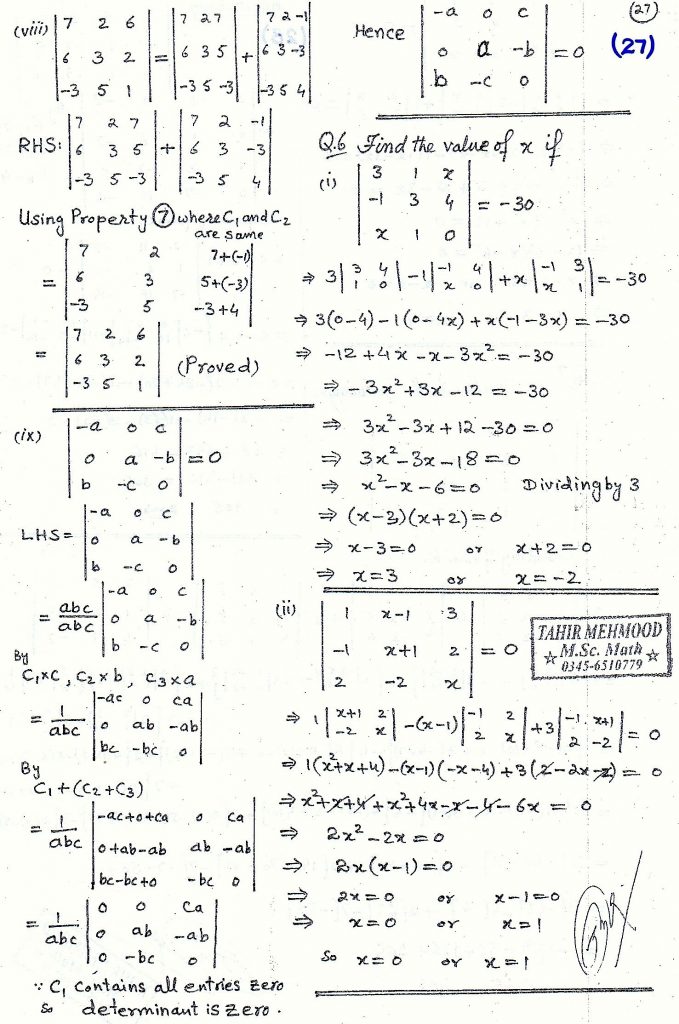 (27)
(27)
(viii) |7 2 6; 6 3 2; -3 5 1| = |7 2 7; 6 3 5; -3 5 -3| + |7 2 -1; 6 3 -3; -3 5 4|
RHS: |7 2 7; 6 3 5; -3 5 -3| + |7 2 -1; 6 3 -3; -3 5 4|
Using Property ⑦ where C₁ and C₂
are same
= |7 2 7+(-1); 6 3 5+(-3); -3 5 -3+4|
= |7 2 6; 6 3 2; -3 5 1| (Proved)
(ix) |-a o c; o a -b; b -c o| = 0
LHS = |-a o c; o a -b; b -c o|
= abc/abc |-a o c; o a -b; b -c o|
By
C₁×c, C₂×b, C₃×a
= 1/abc |-ac o ca; o ab -ab; bc -bc o|
By
C₁+(C₂+C₃)
= 1/abc |-ac+o+ca o ca; o+ab-ab ab -ab; bc-bc+o -bc o|
= 1/abc |o o ca; o ab -ab; o -bc o|
∵ C₁ contains all entries zero
so determinant is zero.
Hence |-a o c; o a -b; b -c o| = 0
Q.6 Find the value of x if
(i) |3 1 x; -1 3 4; x 1 0| = -30
⇒ 3|3 4; 1 0| -1|-1 4; x 0| + x|-1 3; x 1| = -30
⇒ 3(0-4) -1(0-4x) + x(-1-3x) = -30
⇒ -12 + 4x - x - 3x² = -30
⇒ -3x² + 3x - 12 = -30
⇒ 3x² - 3x + 12 - 30 = 0
⇒ 3x² - 3x - 18 = 0
⇒ x² - x - 6 = 0 Dividing by 3
⇒ (x-3)(x+2) = 0
⇒ x-3=0 or x+2=0
⇒ x=3 or x=-2
(ii) |1 x-1 3; -1 x+1 2; 2 -2 x| = 0
TAHIR MEHMOOD
☆ M.Sc. Math ☆
0345-6510779
⇒ 1|x+1 2; -2 x| -(x-1)|-1 2; 2 x| +3|-1 x+1; 2 -2| = 0
⇒ 1(x²+x+4) -(x-1)(-x-4) +3(2-2x-2) = 0
⇒ x²+x+4+x²+4x-x-4-6x = 0
⇒ 2x² - 2x = 0
⇒ 2x(x-1) = 0
⇒ 2x=0 or x-1=0
⇒ x=0 or x=1
So x=0 or x=1